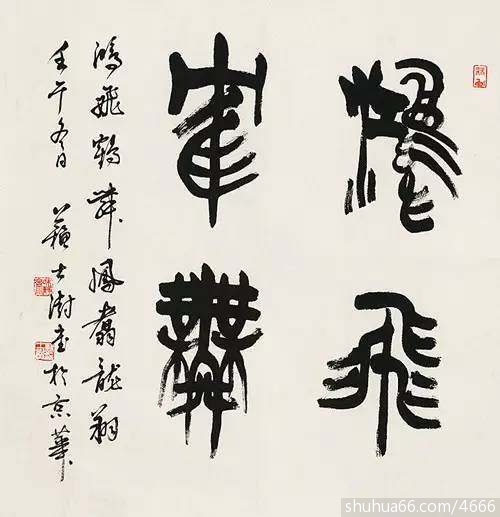 鴻飛
隺舞
鴻飛鶴舞鳳翥龍翔
壬午冬日 蘇士澍書於京華
shuhua66.com/4666